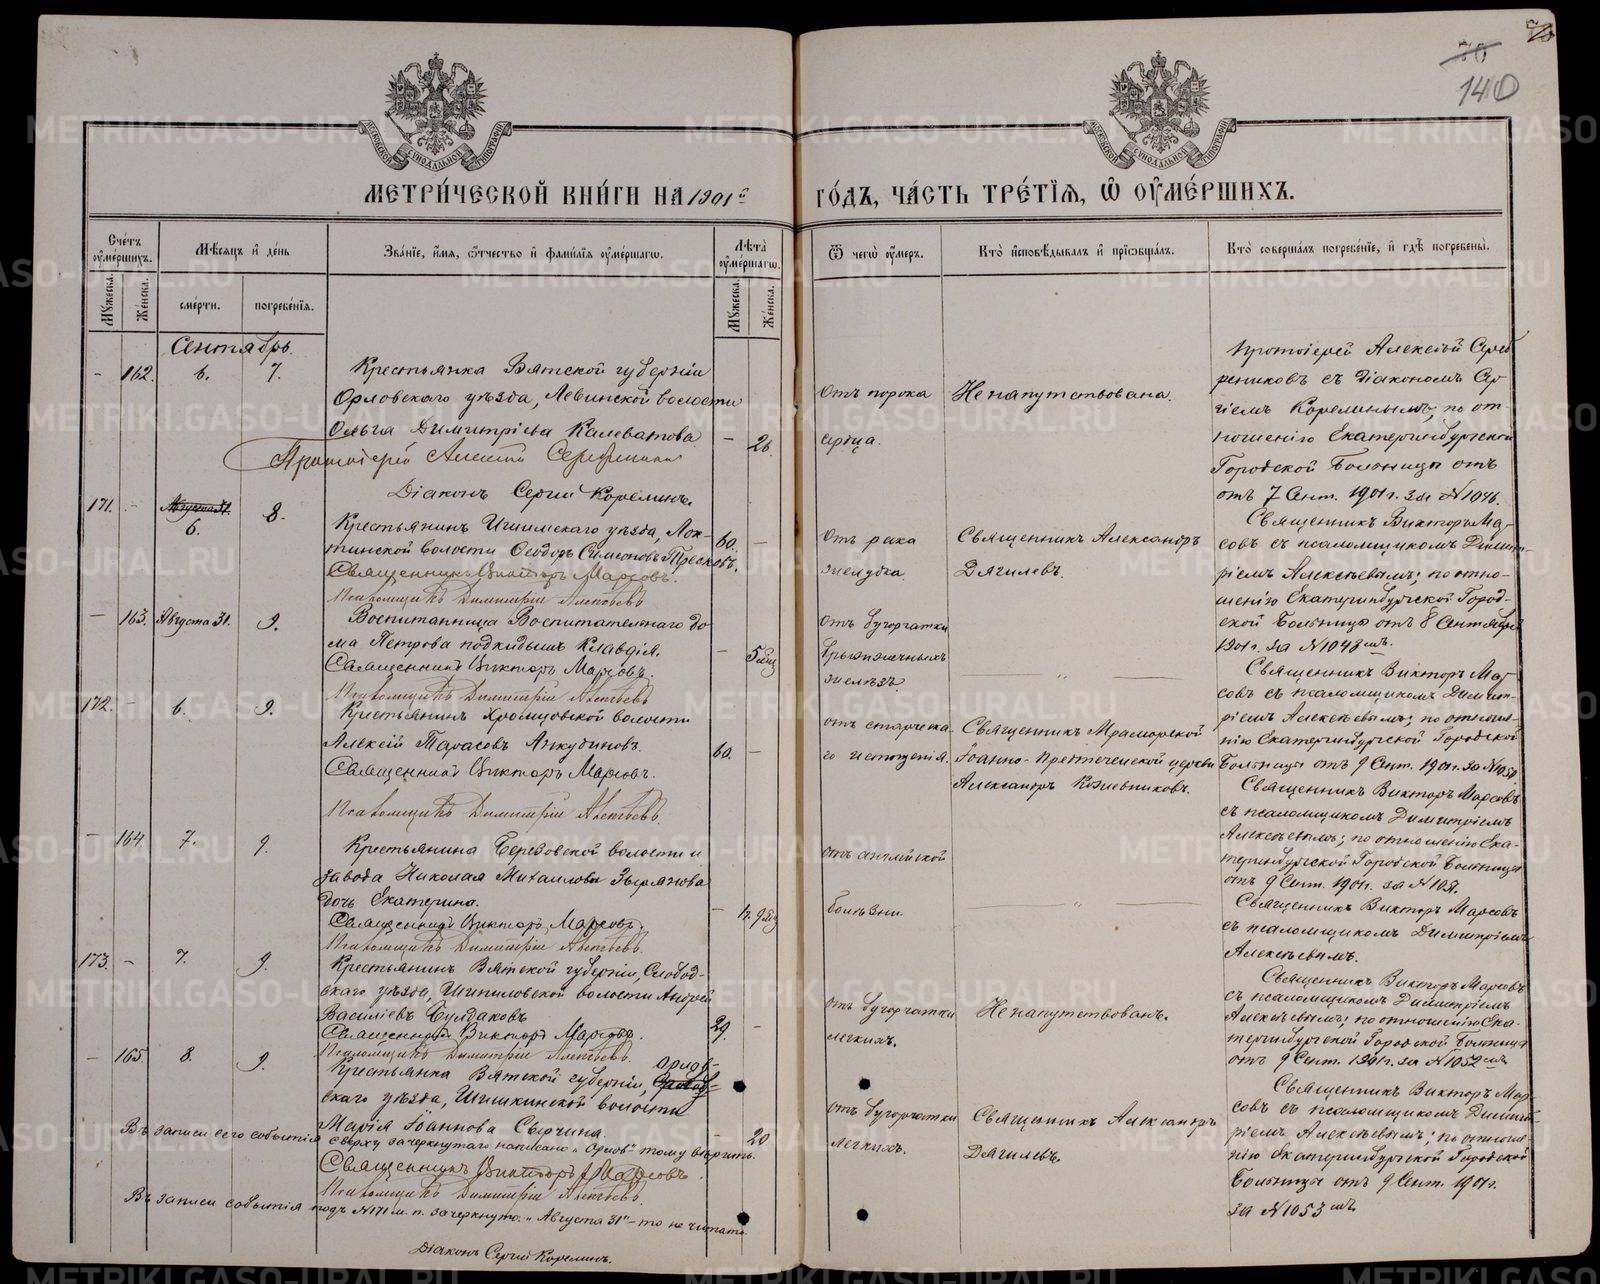 70
140
МОСКОВСКОЙ СѴНОДАЛЬНОЙ ТИПОГРАФІИ
МОСКОВСКОЙ СѴНОДАЛЬНОЙ ТИПОГРАФІИ
МЕТРИ́ЧЕСКОЙ КНИ́ГИ НА 1901й
ГО́ДЪ, ЧА́СТЬ ТРЕ́ТІЯ, Ѿ ОУМЕ́РШИХЪ.
Сче́тъ оуме́ршихъ.
Мѣ́сяцъ и де́нь
Зва́ніе, и́мя, ѻ҆́тчество и фами́лія оуме́ршагѡ.
Лѣ́та оуме́ршагѡ.
Мꙋ́жеска. Же́нска.
сме́рти. погребе́нія.
Мꙋ́жеска. Же́нска.
Ѿ чегѡ̀ оу́меръ.
Кто̀ и҆сповѣ́дывалъ и҆ прїѡбща́лъ.
Кто̀ соверша́лъ погребе́ніе, и҆ гдѣ̀ погребены̀.
Сентябрь.
- 162. 6. 7.
Крестьянка Вятской губерніи
Орловскаго уѣзда, Левинской волости
Ольга Димитріева Калеватова
- 26.
Протоіерей Алексій Серебрениковъ
Діаконъ Сергій Корелинъ.
Отъ порока
сердца.
Не напутствована.
Протоіерей Алексѣй Сереб
рениковъ съ діакономъ Сер
гіемъ Корелинымъ; по от-
ношенію Екатеринбургской
Городской Больницы отъ
отъ 7 Сент. 1901 г. за №1046.
171. - Августа 31. 8.
6.
Крестьянинъ Ишимскаго уѣзда, Лок-
тинской волости Ѳеодоръ Симеоновъ
60. -
Священникъ Викторъ Марсовъ.
Псаломщикъ Димитрій Алексѣевъ
Отъ рака
желудка.
Священникъ Александръ
Дягилевъ.
Священникъ Викторъ Мар-
совъ съ псаломщикомъ Димит-
ріемъ Алексѣевымъ; по отно-
шенію Екатеринбургской Город-
ской Больницы отъ 8 Сентября
1901 г. за №1048мъ.
- 163. Августа 31. 9.
Воспитанница Воспитательнаго до
ма Петрова подкидышъ Клавдія.
- 5 мѣс
Священникъ Викторъ Марсовъ.
Псаломщикъ Димитрій Алексѣевъ
Отъ бугорчатки
брыжжечныхъ
железъ.
"
Священникъ Викторъ Мар-
совъ съ псаломщикомъ Димит-
ріемъ Алексѣевымъ; по отноше-
нію Екатеринбургской Городской
Больницы отъ 9 Сент. 1901 г. за №1050
172. - 6. 9.
Крестьянинъ Хромцовской волости
Алексій Тарасовъ Анкудиновъ.
60. -
Священникъ Викторъ Марсовъ.
Псаломщикъ Димитрій Алексѣевъ
Отъ старческа
го истощенія.
Священникъ Мраморской
Іоанно-Предтеченской церкви
Александръ Кожевниковъ.
Священникъ Викторъ Марсовъ
съ псаломщикомъ Димитріемъ
Алексѣевымъ; по отношенію Ека-
теринбургской Городской Больницы
отъ 9 Сент. 1901 г. за
- 164. 7. 9.
Крестьянина Березовской волости и
завода Николая Михаилова Звѣрянова
дочь Екатерина.
Священникъ Викторъ Марсовъ.
Псаломщикъ Димитрій Алексѣевъ.
Отъ англійской
болѣзни.
"
Священникъ Викторъ Марсовъ
съ псаломщикомъ Димитріемъ
Алексѣевымъ.
173. - 7. 9.
Крестьянинъ Вятской губерніи, Слобод-
скаго уѣзда, Шипиловской волости Андрей
Василіевъ Булдаковъ
29. -
Священникъ Викторъ Марсовъ.
Псаломщикъ Димитрій Алексѣевъ.
Отъ бугорчатки
легкихъ.
Не напутствованъ.
Священникъ Викторъ Марсовъ
съ псаломщикомъ Димитріемъ
Алексѣевымъ; по отношенію Ека-
теринбургской Городской Больницы
отъ 9 Сент. 1901 г. за №1052мъ
- 165. 8. 9.
Орлов-
Крестьянка Вятской губерніи, Слобод-
скаго уѣзда, Шишкинской волости
Марія Іоаннова Сырчина.
- 20
Въ записи сего событія сверху зачеркнутаго написано „Орлов" тому вѣрить.
Священникъ Викторъ Марсовъ.
Псаломщикъ Димитрій Алексѣевъ.
Отъ бугорчатки
легкихъ.
Священникъ Александръ
Дягилевъ.
Священникъ Викторъ Мар
совъ съ псаломщикомъ Димит-
ріемъ Алексѣевымъ; по отноше-
нію Екатеринбургской Городской
Больницы отъ 9 Сент. 1901 г.
за №1053мъ
Въ записи событія подъ №171 м. п. зачеркнуто „Августа 31" - то не читать.
Діаконъ Сергій Корелинъ.
METRIKI.GASO-URAL.RU